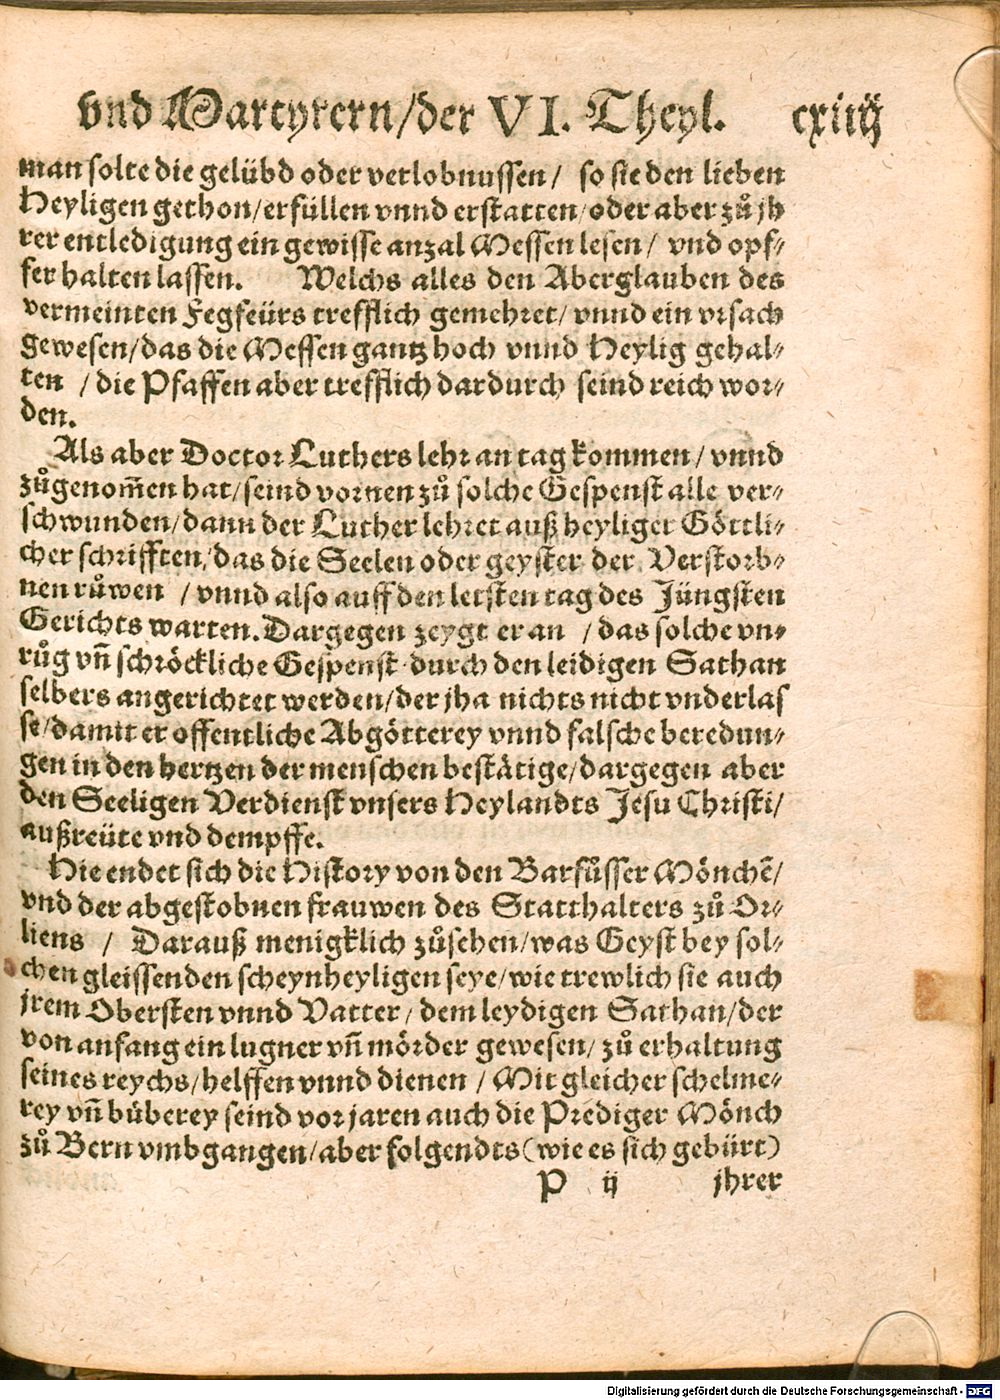 vnd Martyrern/der VI. Theyl. cxiiij
man solte die gelübd oder verlobnussen/ so sie den lieben
Heyligen gethon/erfüllen vnnd erstatten/oder aber zů jh
rer entledigung ein gewisse anzal Messen lesen/ vnd opf-
fer halten lassen. Welchs alles den Aberglauben des
vermeinten Fegfeürs trefflich gemehret/ vnnd ein vrsach
gewesen/das die Messen gantz hoch vnnd Heylig gehal-
ten /die Pfaffen aber trefflich dardurch seind reich wor-
den.
Als aber Doctor Luthers lehr an tag kommen/ vnnd
zůgenom̃en hat/seind vornen zů solche Gespenst alle ver-
schwunden/dann der Luther lehret auß heyliger Göttli-
cher schrifften/das die Seelen oder geyster der Verstorb-
nen růwen /vnnd also auff den letsten tag des Jüngsten
Gerichts warten. Dargegen zeygt er an /das solche vn-
růg vñ schröckliche Gespenst durch den leidigen Sathan
selbers angerichtet werden/der jha nichts nicht vnderlas
se/damit er offentliche Abgötterey vnnd falsche beredun-
gen in den hertzen der menschen bestätige/dargegen aber
den Seeligen Verdienst vnsers Heylandts Jesu Christi/
außreüte vnd dempffe.
Hie endet sich die History von den Barfůsser Mönchẽ/
vnd der abgestobnen frauwen des Statthalters zů Or-
liens / Darauß menigklich zůsehen/was Geyst bey sol-
chen gleissenden scheynheyligen seye/wie trewlich sie auch
jrem Obersten vnnd Vatter/ dem leydigen Sathan/der
von anfang ein lugner vñ mörder gewesen/ zů erhaltung
seines reychs/helffen vnnd dienen /Mit gleicher schelme-
rey vñ büberey seind vor jaren auch die Prediger Mönch
zů Bern vmbgangen/aber folgendts (wie es sich gebürt)
P ij jhrer
Digitalisierung gefördert durch die Deutsche Forschungsgemeinschaft - DFG